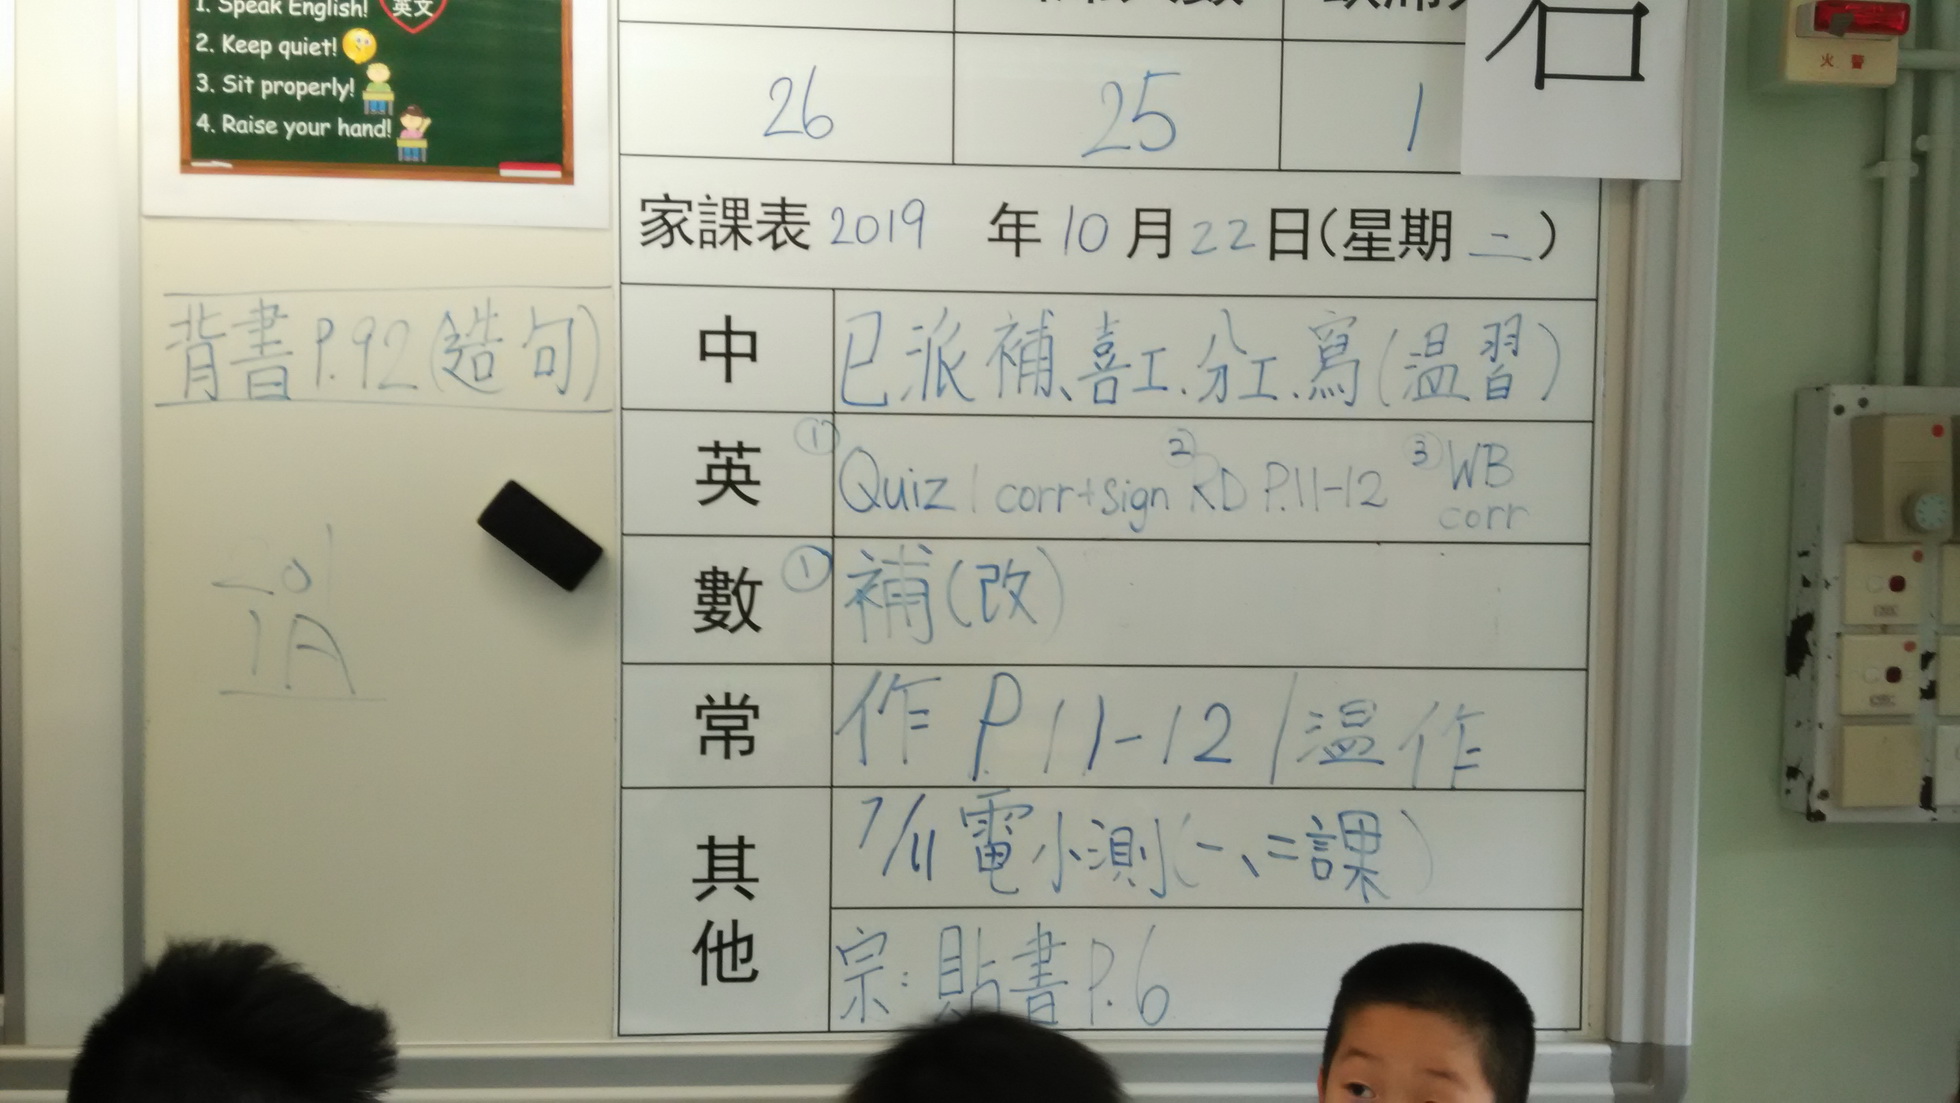 1. Speak English!
英文
2. Keep quiet!
3. Sit properly!
4. Raise your hand!
26 25 1
石
火警
家課表 2019 年 10 月 22 日(星期二)
背書 P.92 (造句)
中 已派補、喜工、分工、寫(温習)
英 ① Quiz 1 corr+sign ② RD P.11-12 ③ WB corr
數 ① 補(改)
常 作 P 11-12 / 温作
其他 7/11 電小測(一、二課)
宗: 貼書 P.6
201
1A